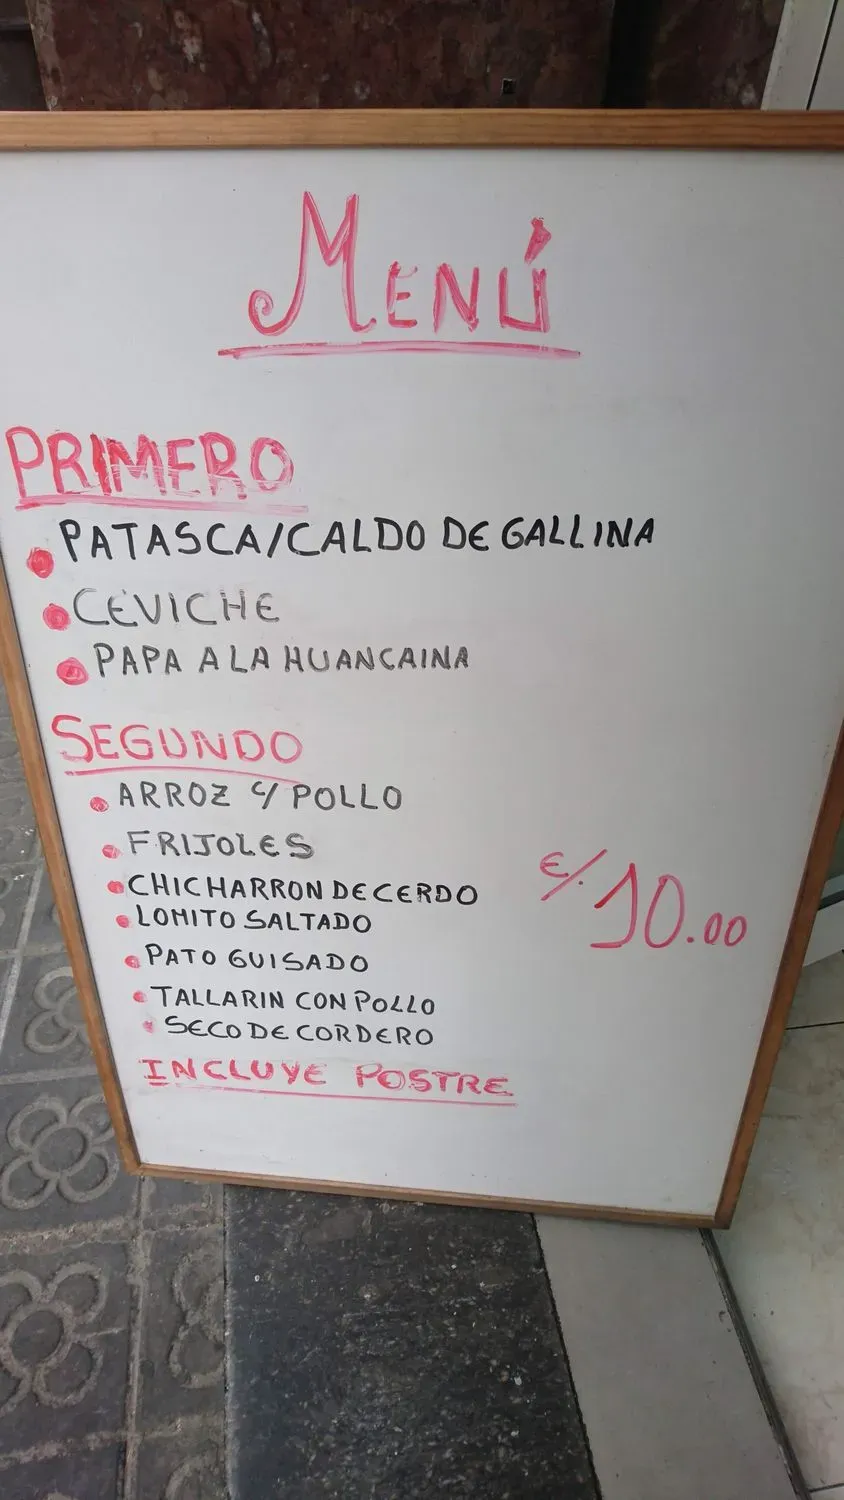 MENÚ
PRIMERO
PATASCA/CALDO DE GALLINA
CEVICHE
PAPA A LA HUANCAINA
SEGUNDO
ARROZ C/ POLLO
FRIJOLES
CHICHARRON DE CERDO
LOMITO SALTADO
€/. 10.00
PATO GUISADO
TALLARIN CON POLLO
SECO DE CORDERO
INCLUYE POSTRE